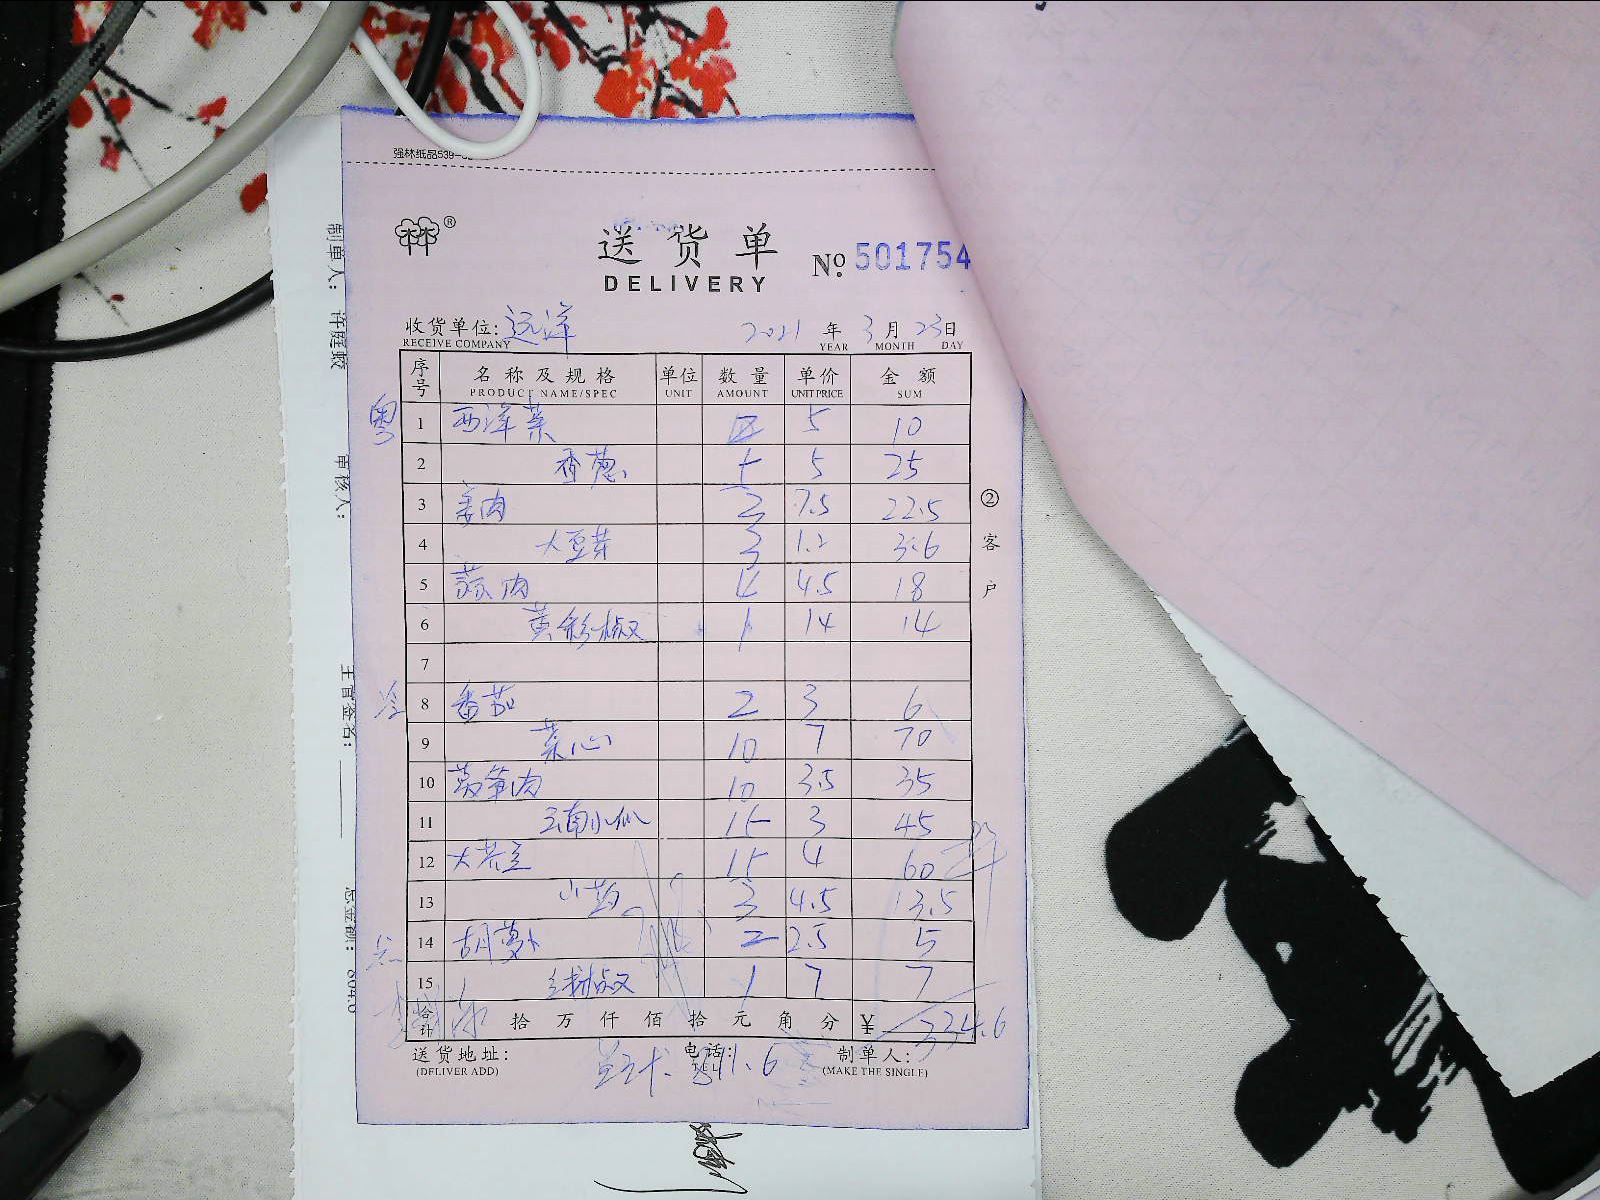 强林纸品539-
林®
送货单
DELIVERY
№ 501754
收货单位: 远洋 2021 年 3 月 23 日
RECEIVE COMPANY YEAR MONTH DAY
序号 名称及规格 单位 数量 单价 金额
PRODUCT NAME/SPEC UNIT AMOUNT UNIT PRICE SUM
粤 1 西洋菜 5 10
2 香葱 5 5 25
3 姜肉 3 7.5 22.5
4 大豆芽 3 1.2 3.6
5 蒜肉 4 4.5 18
6 黄彩椒 1 14 14
7
8 番茄 2 3 6
9 菜心 10 7 70
10 莴笋肉 10 3.5 35
11 云南小瓜 15 3 45
12 大芥兰 15 4 60
13 小 3 4.5 13.5
14 胡萝卜 2 2.5 5
15 椒 1 7 7
合计 拾 万 仟 佰 拾 元 角 分 ¥ 334.6
送货地址: 电话: 制单人:
(DELIVER ADD) TEL (MAKE THE SINGLE)
② 客户
制单人: 许庭
审核人:
主管签名:
总金额: